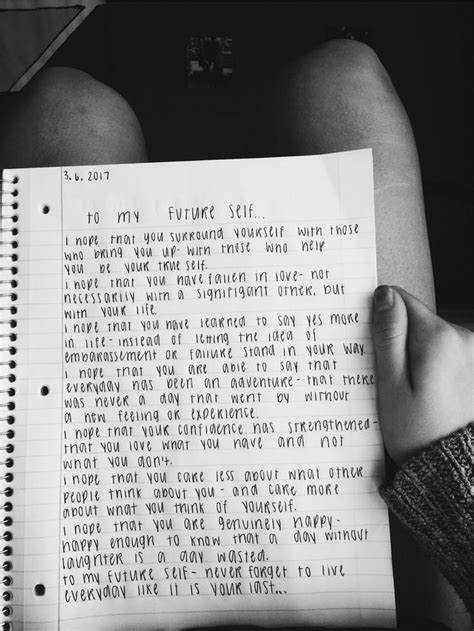 3.6.2017
to my future self...
I hope that you surround yourself with those
who bring you up- with those who help
you be your true self.
I hope that you have fallen in love- not
necessarily with a signifigant other, but
with your life.
I hope that you have learned to say yes more
in life- instead of letting the idea of
embarassement or failure stand in your way.
I hope that you are able to say that
everyday has been an adventure- that there
was never a day that went by without
a new feeling or experience.
I hope that your confidence has strengthened-
that you love what you have and not
what you don't.
I hope that you care less about what other
people think about you- and care more
about what you think of yourself.
I hope that you are genuinely happy-
happy enough to know that a day without
laughter is a day wasted.
to my future self- never forget to live
everyday like it is your last...